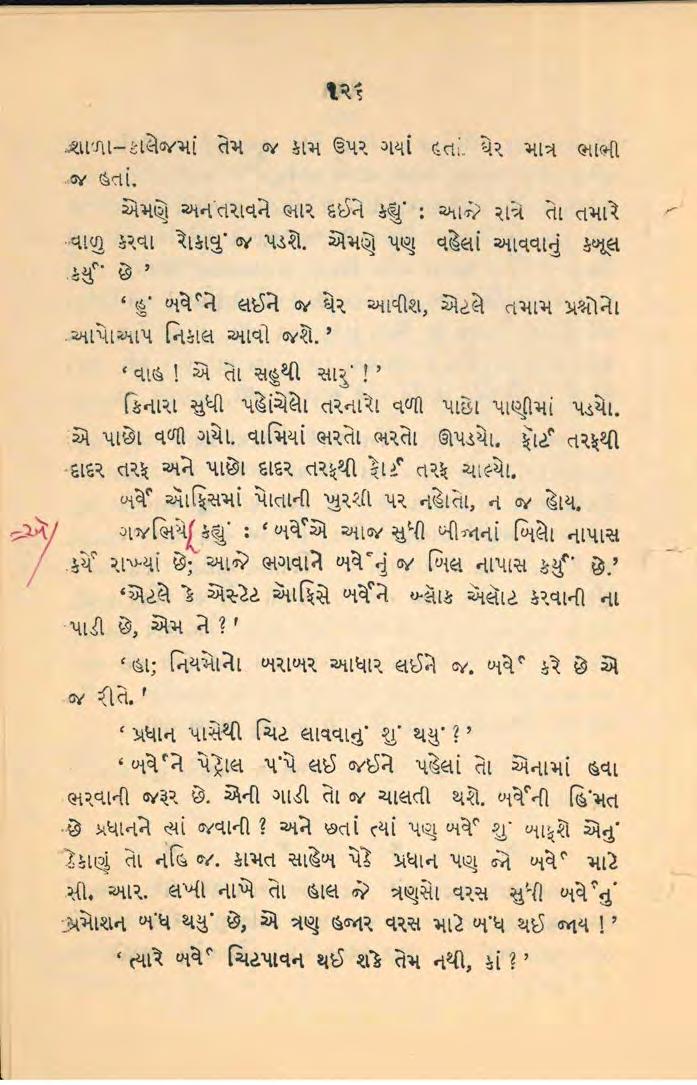 ૧૨૬
શાળા–કાલેજમાં તેમ જ કામ ઉપર ગયાં હતાં. ઘેર માત્ર ભાભી
જ હતાં.
એમણે અનંતરાવને ભાર દઈને કહ્યું : આજે રાત્રે તો તમારે
વાળુ કરવા રોકાવું જ પડશે. એમણે પણ વહેલાં આવવાનું કબૂલ
કર્યું છે ’
‘ હું બર્વેને લઈને જ ઘેર આવીશ, એટલે તમામ પ્રશ્નોનો
આપોઆપ નિકાલ આવી જશે. ’
‘ વાહ ! એ તો સહુથી સારું ! ’
કિનારા સુધી પહોંચેલો તરનારો વળી પાછો પાણીમાં પડ્યો.
એ પાછો વળી ગયો. વામિયાં ભરતો ભરતો ઊપડયો. ફોર્ટ તરફથી
દાદર તરફ અને પાછો દાદર તરફથી ફોર્ટ તરફ ચાલ્યો.
બર્વે ઑફિસમાં પોતાની ખુરશી પર નહોતો, ન જ હોય.
=એ/ ગજભિયે કહ્યું : ‘ બર્વેએ આજ સુધી બીજાનાં બિલો નાપાસ
કર્યે રાખ્યાં છે; આજે ભગવાને બર્વેનું જ બિલ નાપાસ કર્યું છે.’
‘એટલે કે એસ્ટેટ ઑફિસે બર્વેને બ્લૉક ઍલૉટ કરવાની ના
પાડી છે, એમ ને ? ’
‘ હા; નિયમોનો બરાબર આધાર લઈને જ. બર્વે કરે છે એ
જ રીતે. ’
‘ પ્રધાન પાસેથી ચિટ લાવવાનું શું થયું ? ’
‘ બર્વેને પેટ્રોલ પંપે લઈ જઈને પહેલાં તો એનામાં હવા
ભરવાની જરૂર છે. એની ગાડી તો જ ચાલતી થશે. બર્વેની હિંમત
છે પ્રધાનને ત્યાં જવાની ? અને છતાં ત્યાં પણ બર્વે શું બાફશે એનું
ઠેકાણું તો નહિ જ. કામત સાહેબ પેઠે પ્રધાન પણ જો બર્વે માટે
સી. આર. લખી નાખે તો હાલ જે ત્રણસો વરસ સુધી બર્વેનું
પ્રમોશન બંધ થયું છે, એ ત્રણ હજાર વરસ માટે બંધ થઈ જાય ! ’
‘ ત્યારે બર્વે ચિટપાવન થઈ શકે તેમ નથી, કાં ? ’